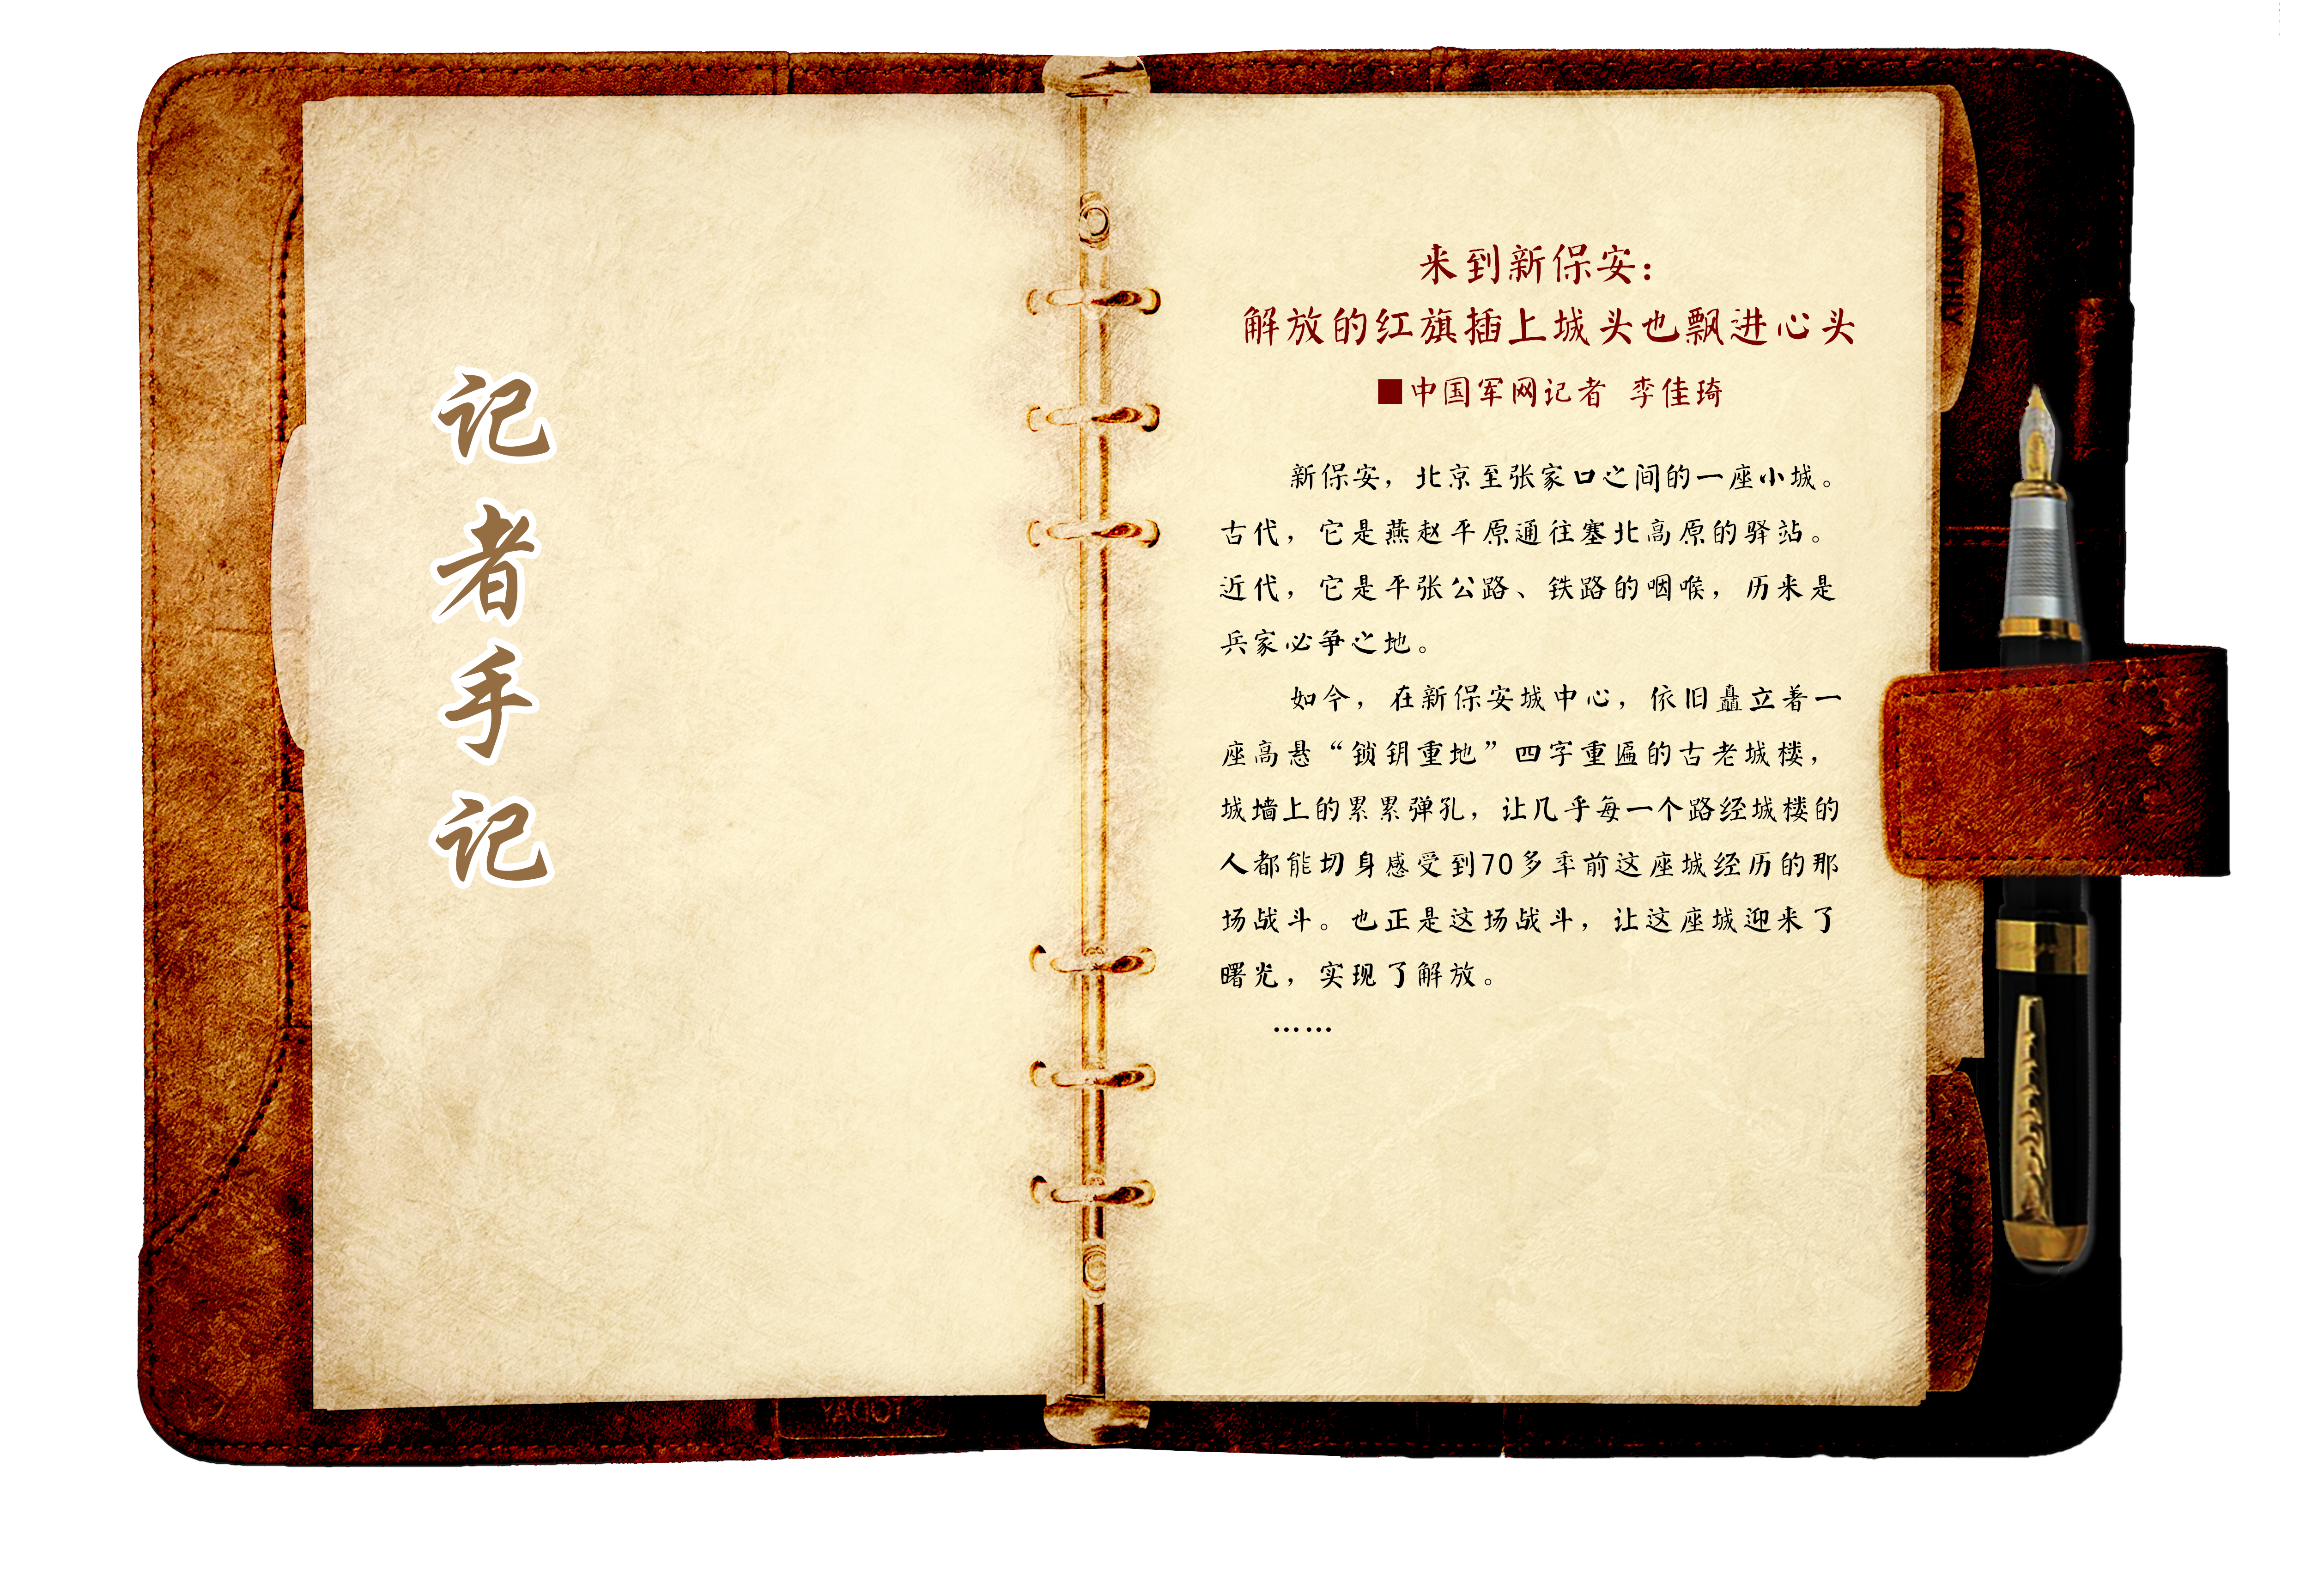 记者手记
来到新保安：
解放的红旗插上城头也飘进心头
■中国军网记者 李佳琦
新保安，北京至张家口之间的一座小城。
古代，它是燕赵平原通往塞北高原的驿站。
近代，它是平张公路、铁路的咽喉，历来是
兵家必争之地。
如今，在新保安城中心，依旧矗立着一
座高悬“锁钥重地”四字重匾的古老城楼，
城墙上的累累弹孔，让几乎每一个路经城楼的
人都能切身感受到70多年前这座城经历的那
场战斗。也正是这场战斗，让这座城迎来了
曙光，实现了解放。
……
MONTHLY
TODAY